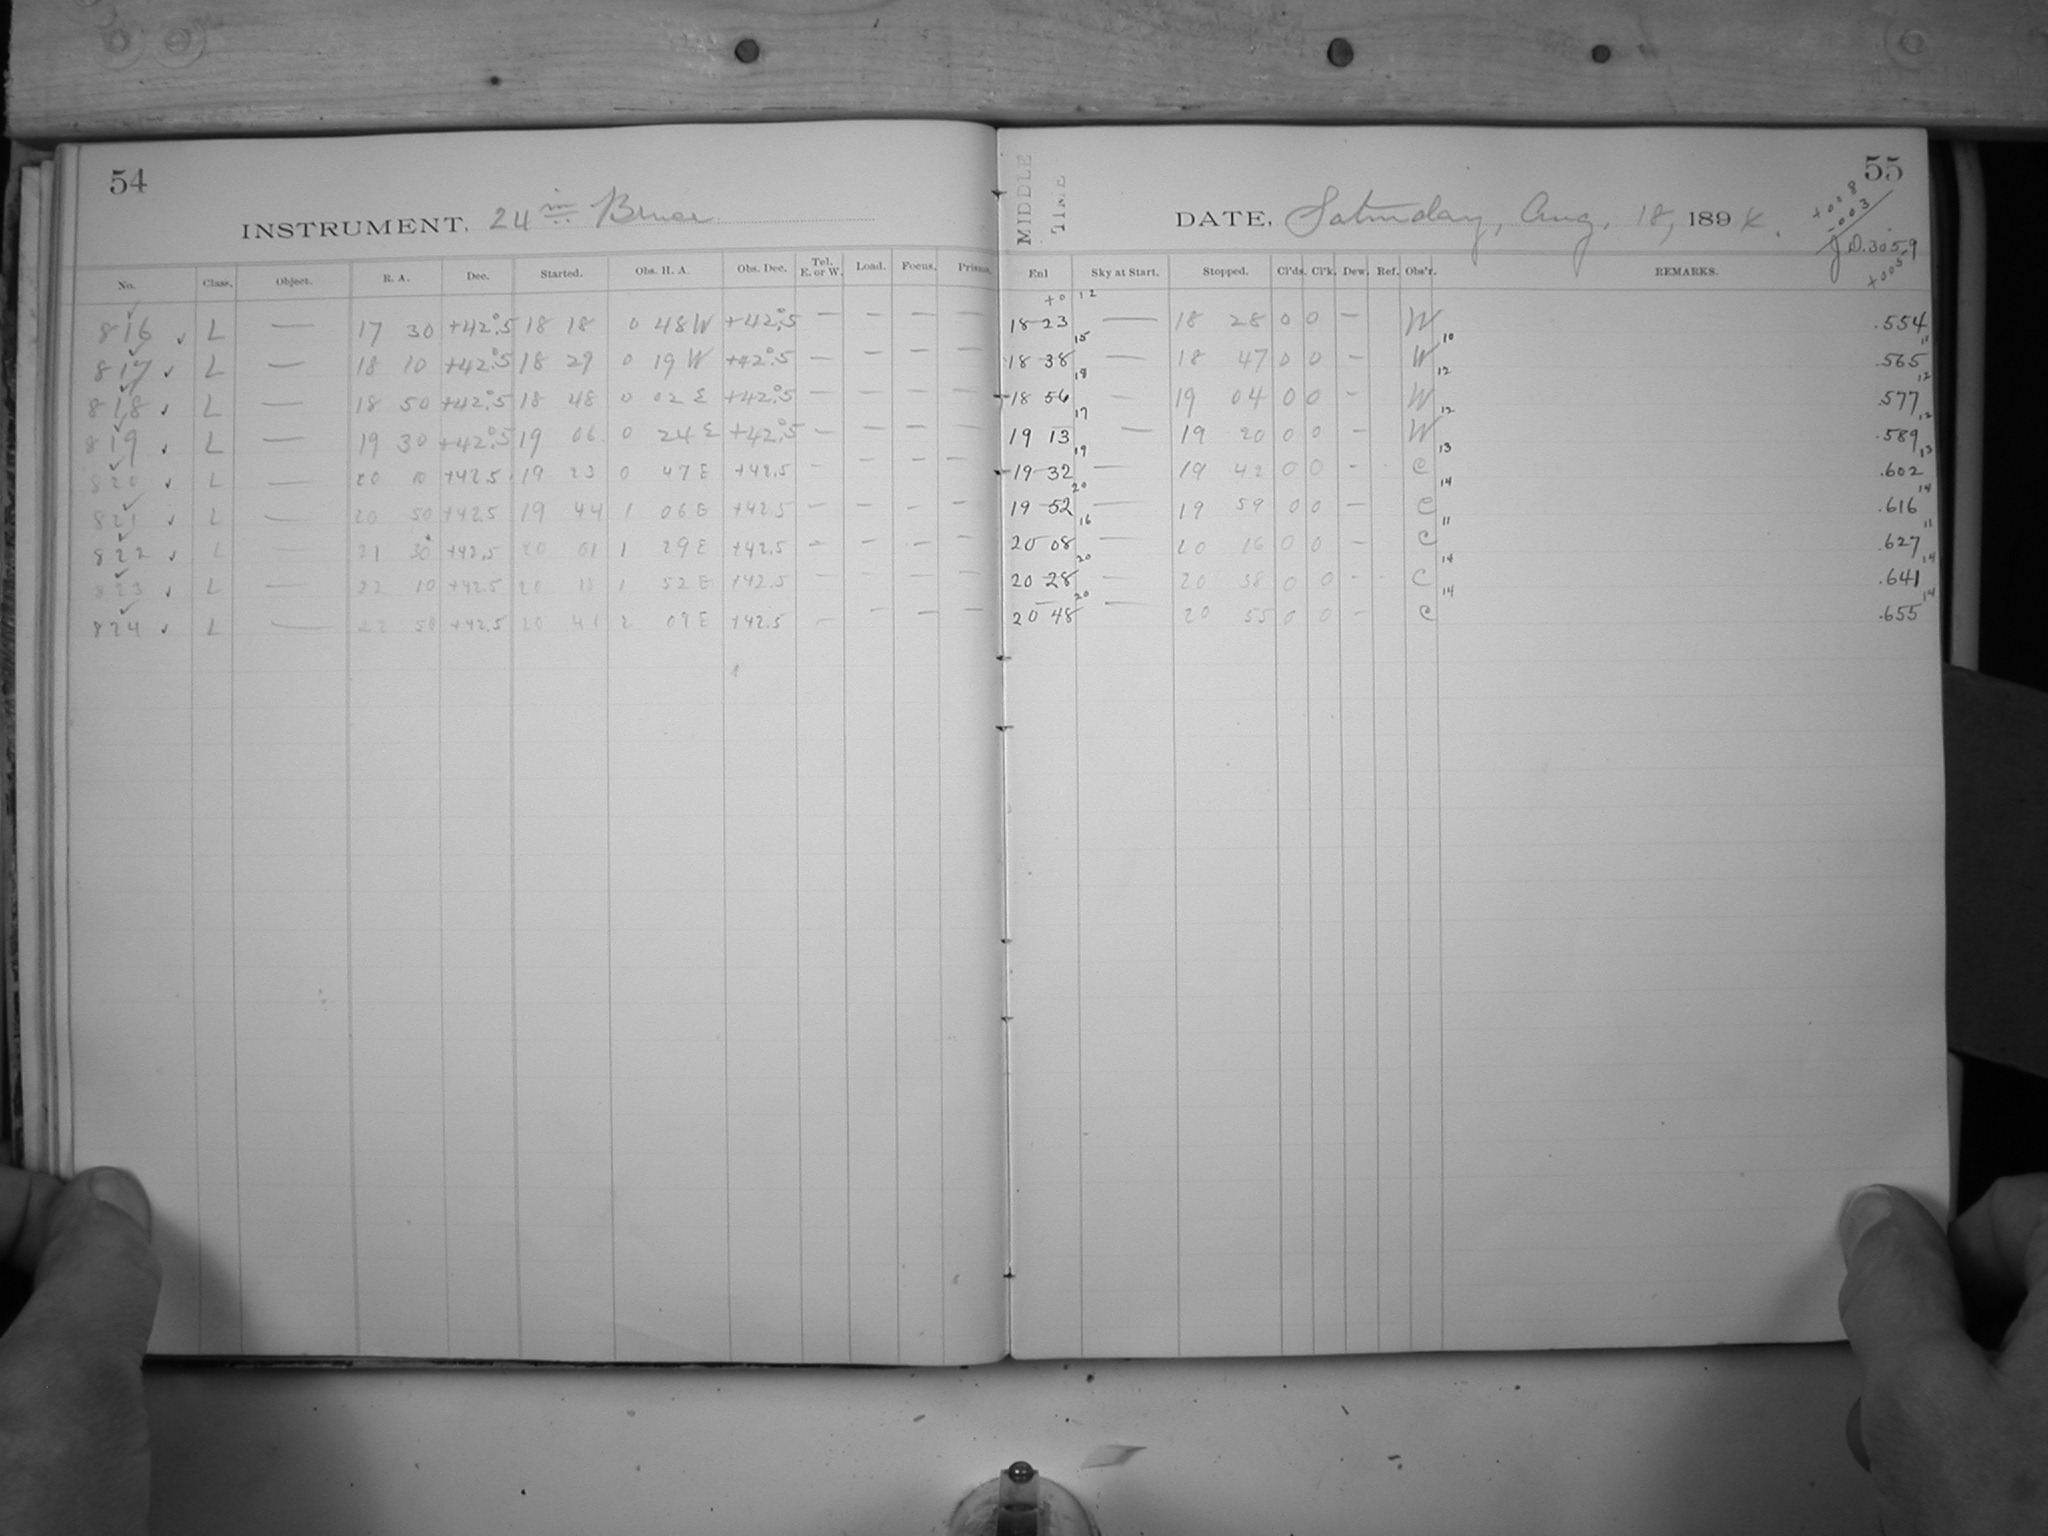 54
INSTRUMENT, 24 in Bruce
No. Class. Object. R. A. Dec. Started. Obs. H. A. Obs. Dec. Tel. E. or W. Load. Focus. Prisms.
816 L — 17 30 +42°.5 18 18 0 48 W +42°.5 — — — —
817 L — 18 10 +42°.5 18 29 0 19 W +42°.5 — — — —
818 L — 18 50 +42°.5 18 48 0 02 E +42°.5 — — — —
819 L — 19 30 +42°.5 19 06 0 24 E +42°.5 — — — —
820 L — 20 10 +42.5 19 23 0 47 E +42.5 — — — —
821 L — 20 50 +42.5 19 44 1 06 E +42.5 — — — —
822 L — 21 30 +42.5 20 01 1 29 E +42.5 — — — —
823 L — 22 10 +42.5 20 18 1 52 E +42.5 — — — —
824 L — 22 50 +42.5 20 41 2 09 E +42.5 — — — —
55
MIDDLE TIME
DATE, Saturday, Aug. 18, 1894.
+008
-003
J.D. 3059
+005
Enl Sky at Start. Stopped. Cl'ds. Cl'k. Dew. Ref. Obs'r. REMARKS.
+0 12
18 23 — 18 28 0 0 — W .554
15 10 11
18 38 — 18 47 0 0 — W .565
18 12 12
18 56 — 19 04 0 0 — W .577
17 12 12
19 13 — 19 20 0 0 — W .589
19 13 13
19 32 — 19 42 0 0 — C .602
20 14 14
19 52 — 19 59 0 0 — C .616
16 11 11
20 08 — 20 16 0 0 — C .627
20 14 14
20 28 — 20 38 0 0 — C .641
20 14 14
20 48 — 20 55 0 0 — C .655